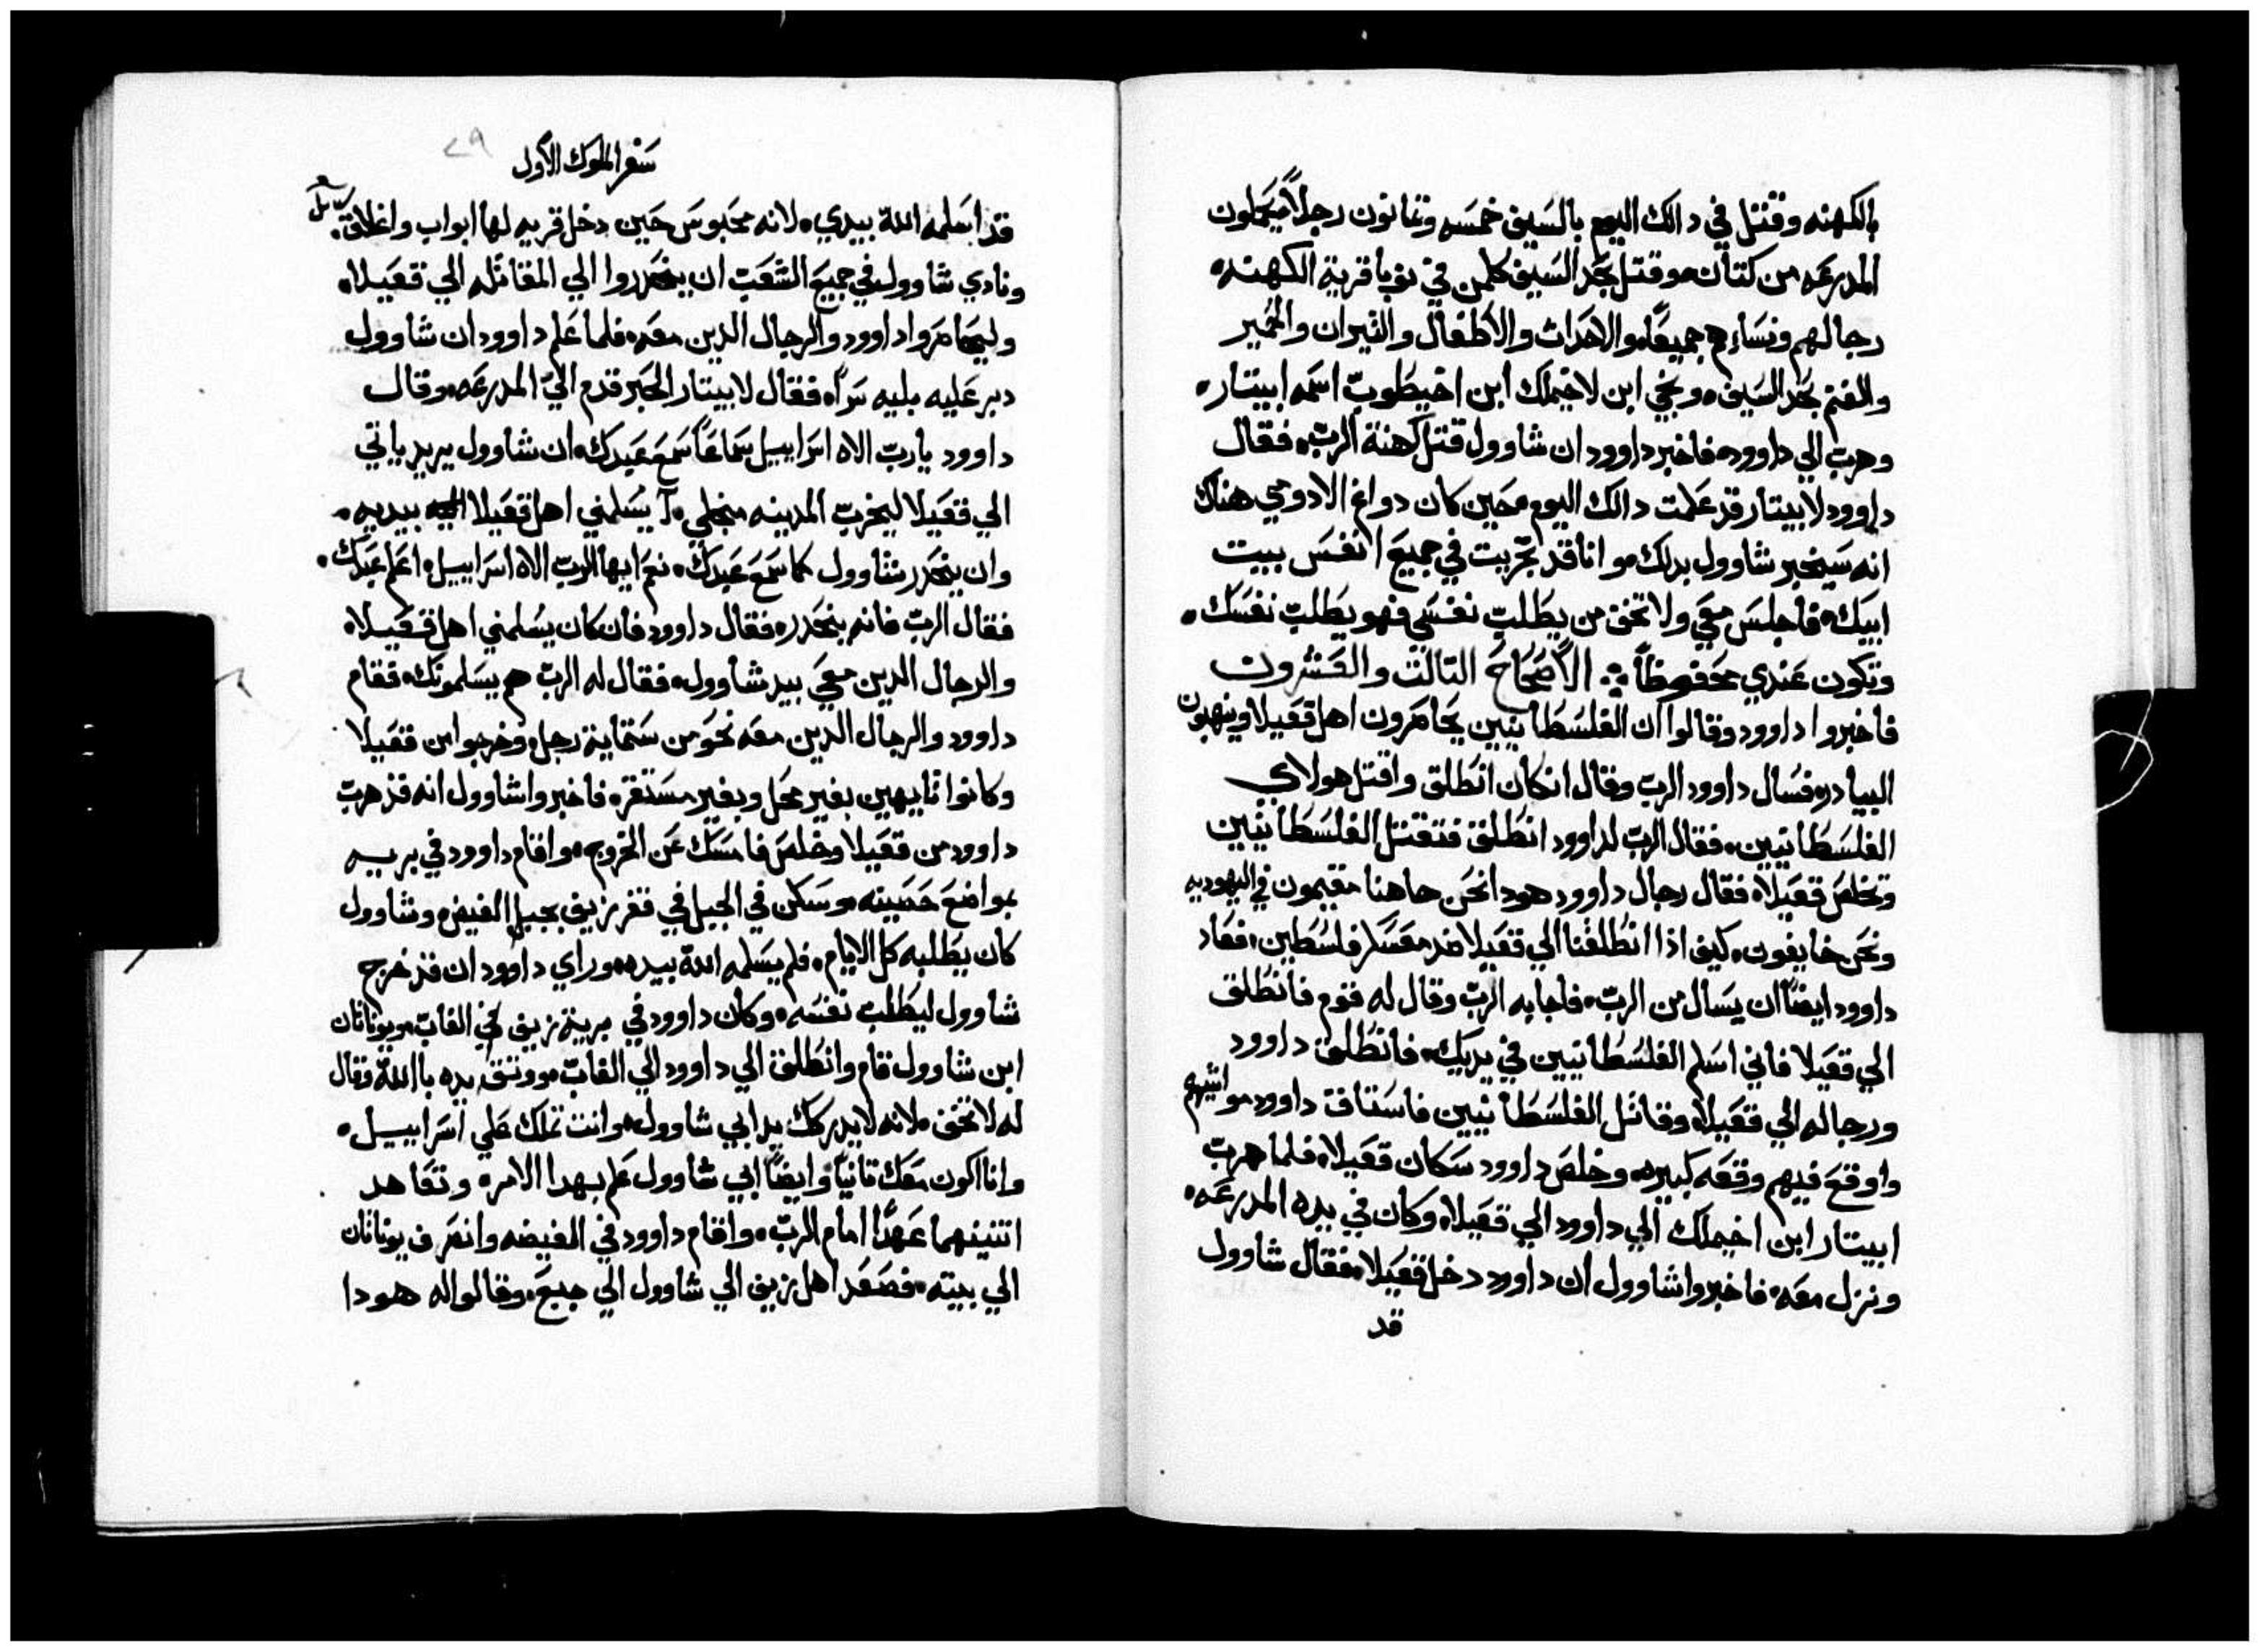 بالكهنه وقتل في دالك اليوم بالسيف خمسه وتمانون رجلاً يحملون
المدرعه من كتان، وقتل بحد السيف كلمن في نوبا قرية الكهنه،
رجالهم ونساءهم جميعاً، والاحداث والاطفال والتيران والحمير
والغنم بحد السيف، ونجي ابن لاخيملك ابن اخيطوب اسمه ابيتار،
وهرب الي داوود، فاخبر داوود ان شاوول قتل كهنة الرب، فقال
داوود لابيتار قد علمت دالك اليوم، حين كان دواغ الادومي هناك
انه سيخبر شاوول بدلك، وانا قد تجربت في جميع انفس بيت
ابيك، فاجلس معي ولا تخف من يطلب نفسي فهو يطلب نفسك،
وتكون عندي محفوظاً ؞ الاصحاح التالت والعشرون
فاخبروا داوود وقالوا ان الفلسطانيين يحاصرون اهل قعيلا وينهبون
البيادر، فسال داوود الرب وقال انكان انطلق واقتل هولاي
الفلسطانيين، فقال الرب لداوود انطلق فتقتل الفلسطانيين
وتخلص قعيلا، فقال رجال داوود هودا نحن هاهنا مقيمون في اليهوديه
ونحن خايفون، كيف ادا انطلقنا الي قعيلا ضد معسكر فلسطين، فعاد
داوود ايضاً ان يسال من الرب، فاجابه الرب وقال له قوم فانطلق
الي قعيلا فاني اسلم الفلسطانيين في يديك، فانطلق داوود
ورجاله الي قعيلا، وقاتل الفلسطانيين فاستاق داوود مواشيهم
واوقع فيهم وقعه كبيره، وخلص داوود سكان قعيلا، فلما هرب
ابيتار ابن اخيملك الي داوود الي قعيلا، وكان في يده المدرعه،
ونزل معه، فاخبروا شاوول ان داوود دخل قعيلا، فقال شاوول
قد
سفر الملوك الاول
٢٩
قد اسلمه الله بيدي، لانه محبوس حين دخل قريه لها ابواب واغلاق،
ونادي شاوول في جميع الشعب ان ينحدروا الي المقاتله الي قعيلا،
وليحاصروا داوود والرجال الدين معه، فلما علم داوود ان شاوول
دبر عليه بليه سراً، فقال لابيتار الحبر قدم الي المدرعه، وقال
داوود يارب الاه اسراييل سماعاً سمع عبدك، ان شاوول يريد ياتي
الي قعيلا ليخرب المدينه منجلي، أيسلمني اهل قعيلا بيديه،
وان ينحدر شاوول كما سمع عبدك، نعم ايها الرب الاه اسراييل، اعلم عبدك،
فقال الرب فانه ينحدر، فقال داوود فان كان يسلمني اهل قعيلا،
والرجال الدين معي بيد شاوول، فقال له الرب هم يسلمونك، فقام
داوود والرجال الدين معه نحو من ستماية رجل، وخرجوا من قعيلا
وكانوا تايهين بغير محل وبغير مستقر، فاخبروا شاوول انه قد هرب
داوود من قعيلا وخلص فامسك عن الخروج، واقام داوود في بريه
بمواضع حصينه، وسكن في الجبل في قفر زيف بجبل الغيض، وشاوول
كان يطلبه كل الايام، فلم يسلمه الله بيده، وراي داوود ان قد خرج
شاوول ليطلب نفسه، وكان داوود في برية زيف في الغاب، ويوناتان
ابن شاوول قام وانطلق الي داوود الي الغاب، ووتق يده باالله، وقال
له لا تخف، لانه لا يدركك يد ابي شاوول، وانت تملك علي اسراييل،
وانا اكون معك تانياً وايضاً ابي شاوول علم بهدا الامر، وتعاهد
اتنينهما عهداً امام الرب، واقام داوود في الغيضه وانصرف يوناتان
الي بيته، فصعد اهل زيف الي شاوول الي جبع، وقالوا له هودا